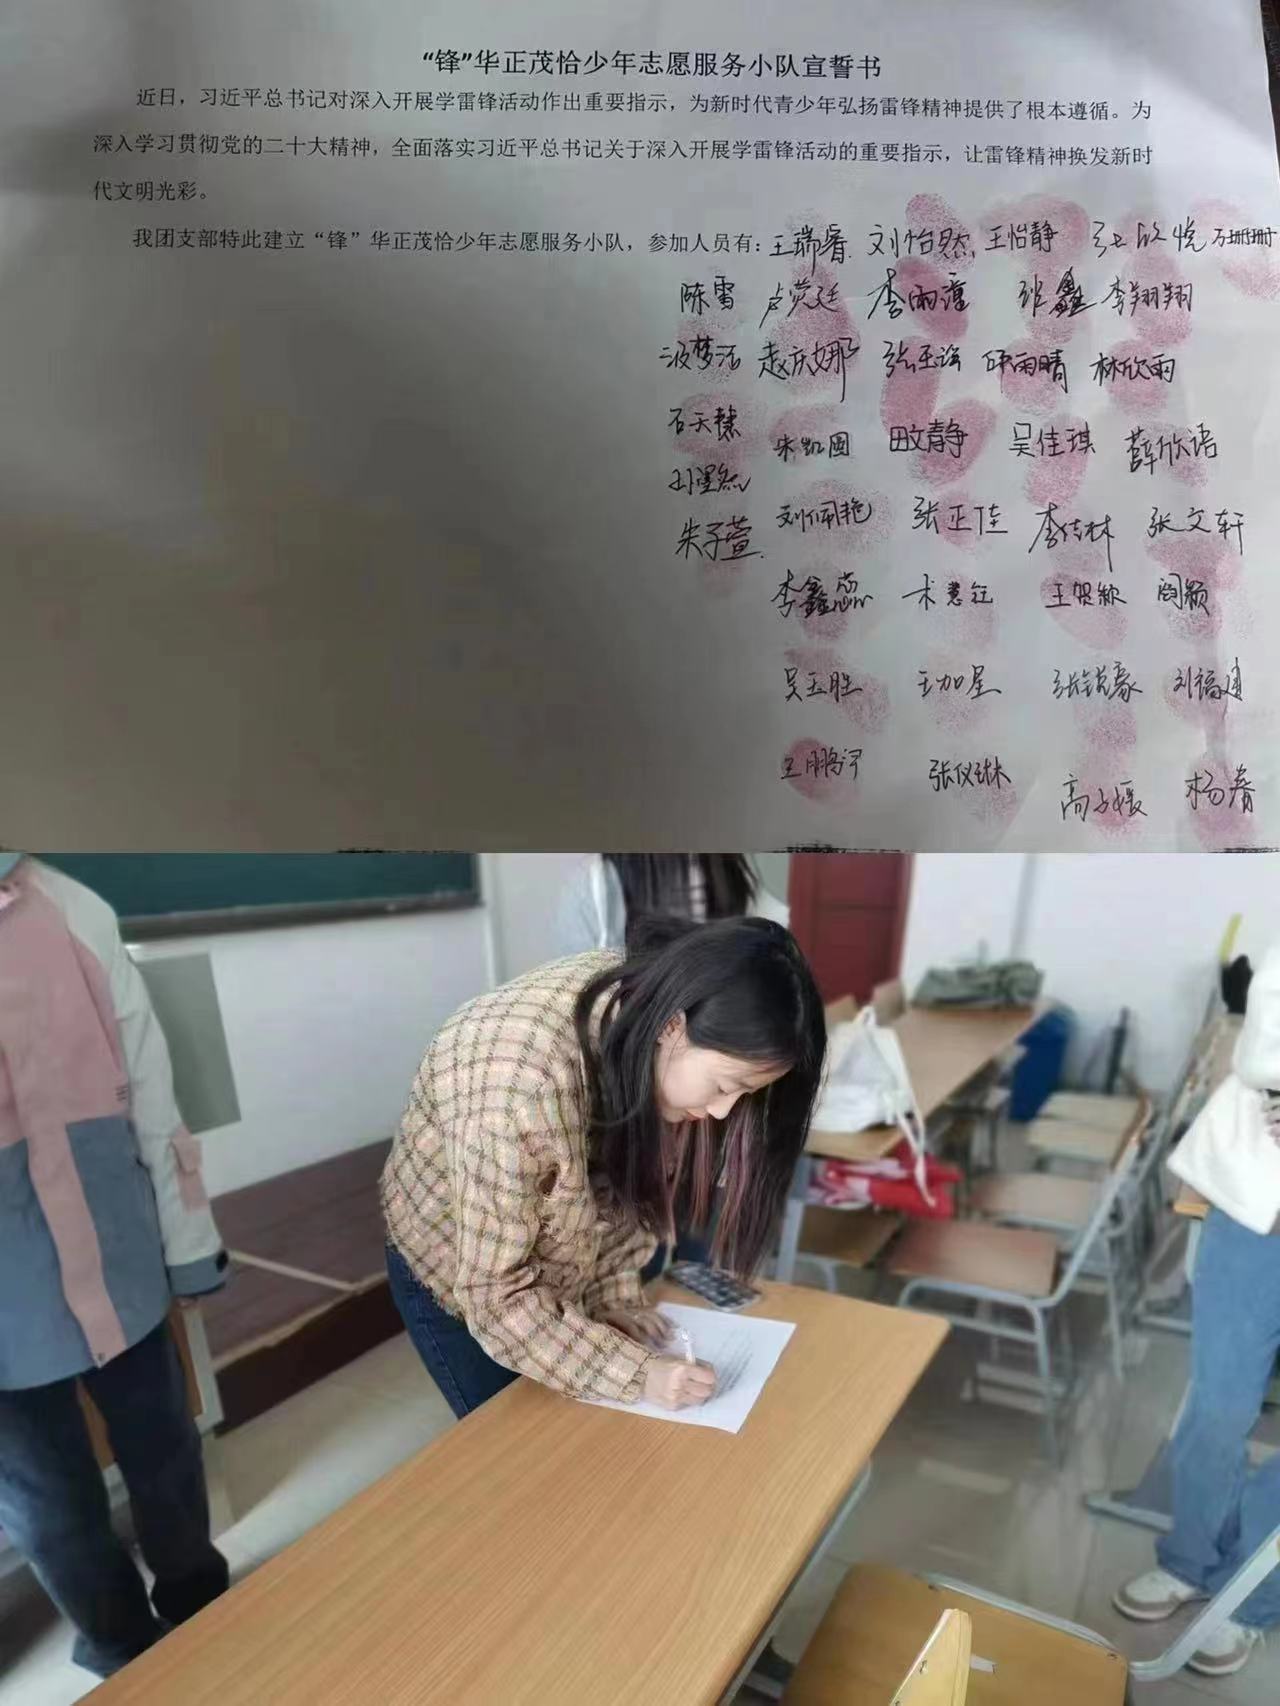 “锋”华正茂恰少年志愿服务小队宣誓书
近日，习近平总书记对深入开展学雷锋活动作出重要指示，为新时代青少年弘扬雷锋精神提供了根本遵循。为
深入学习贯彻党的二十大精神，全面落实习近平总书记关于深入开展学雷锋活动的重要指示，让雷锋精神换发新时
代文明光彩。
我团支部特此建立“锋”华正茂恰少年志愿服务小队，参加人员有：王瑞睿 刘怡然 王怡静 张欣悦 万珊珊
陈雪 卢荧廷 李雨潼 张鑫 李翔翔
赵庆娜 张玉谣 邱雨晴 林欣雨
石天慧 朱凯圆 田文静 吴佳琪 薛欣语
刘佩艳 张正佳 李佳林 张文轩
朱子萱
李鑫蕊 王贺颖 阎颖
吴玉胜 王加星 张锐豪 刘福建
张仪琳 高子媛 杨春